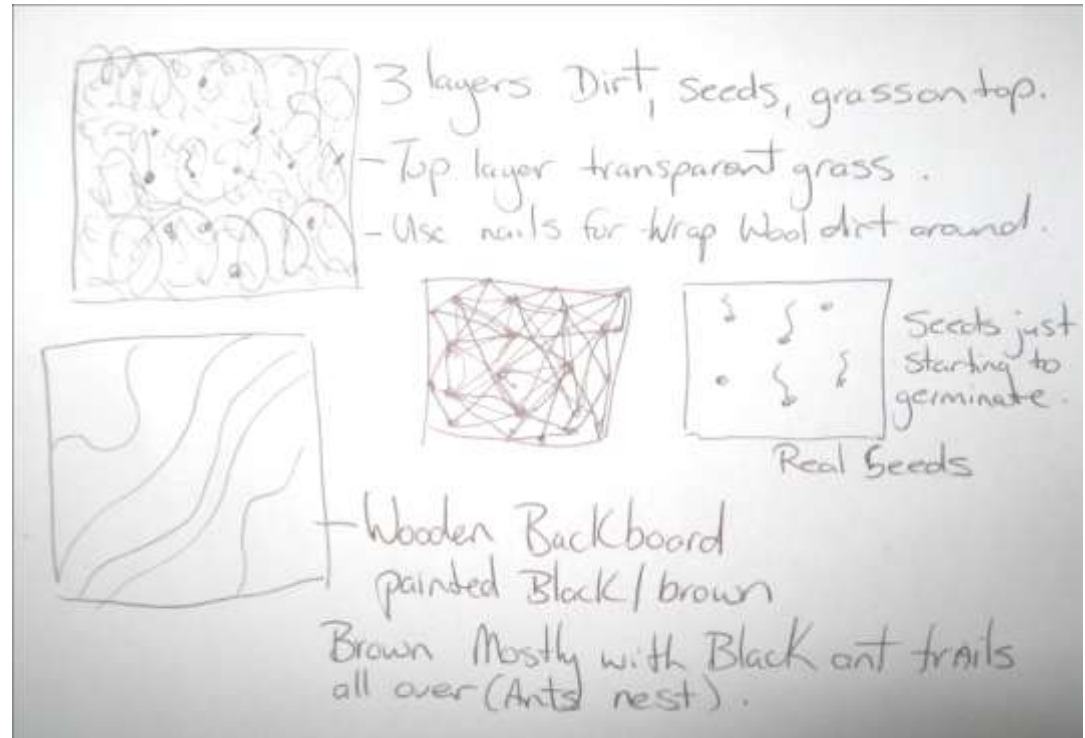 3 layers Dirt, seeds, grass on top.
- Top layer transparent grass.
- Use nails for Wrap Wool dirt around.
Seeds just
starting to
germinate.
Real Seeds
- Wooden Backboard
painted Black/brown
Brown Mostly with Black ant trails
all over (Ants nest).